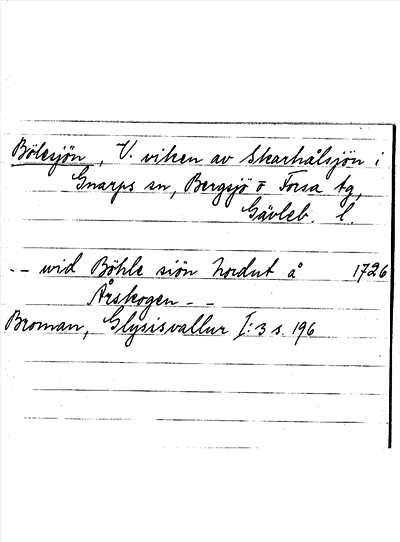 Bölesjön, V. viken av Skarhålsjön i
Gnarps sn, Bergsjö o Forsa tg,
Gävleb. l.
-- wid Böhle siön nordut å 1726
Årskogen - -
Broman, Glysisvallur I:3 s. 196